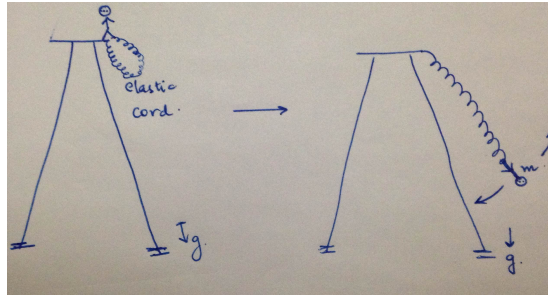 elastic
cord.
g.
m.
g.